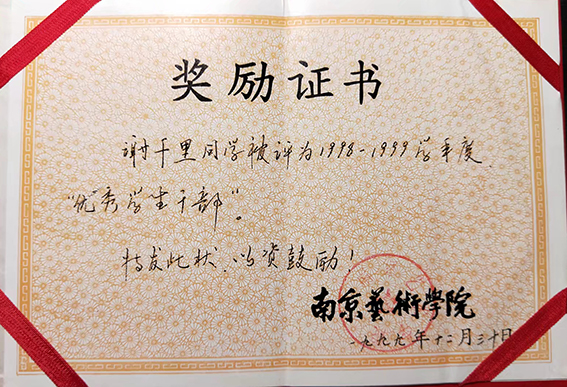 奖励证书
谢千里同学被评为1998-1999学年度
“优秀学生干部”。
特发此状，以资鼓励！
南京藝術學院
一九九九年十二月三十日